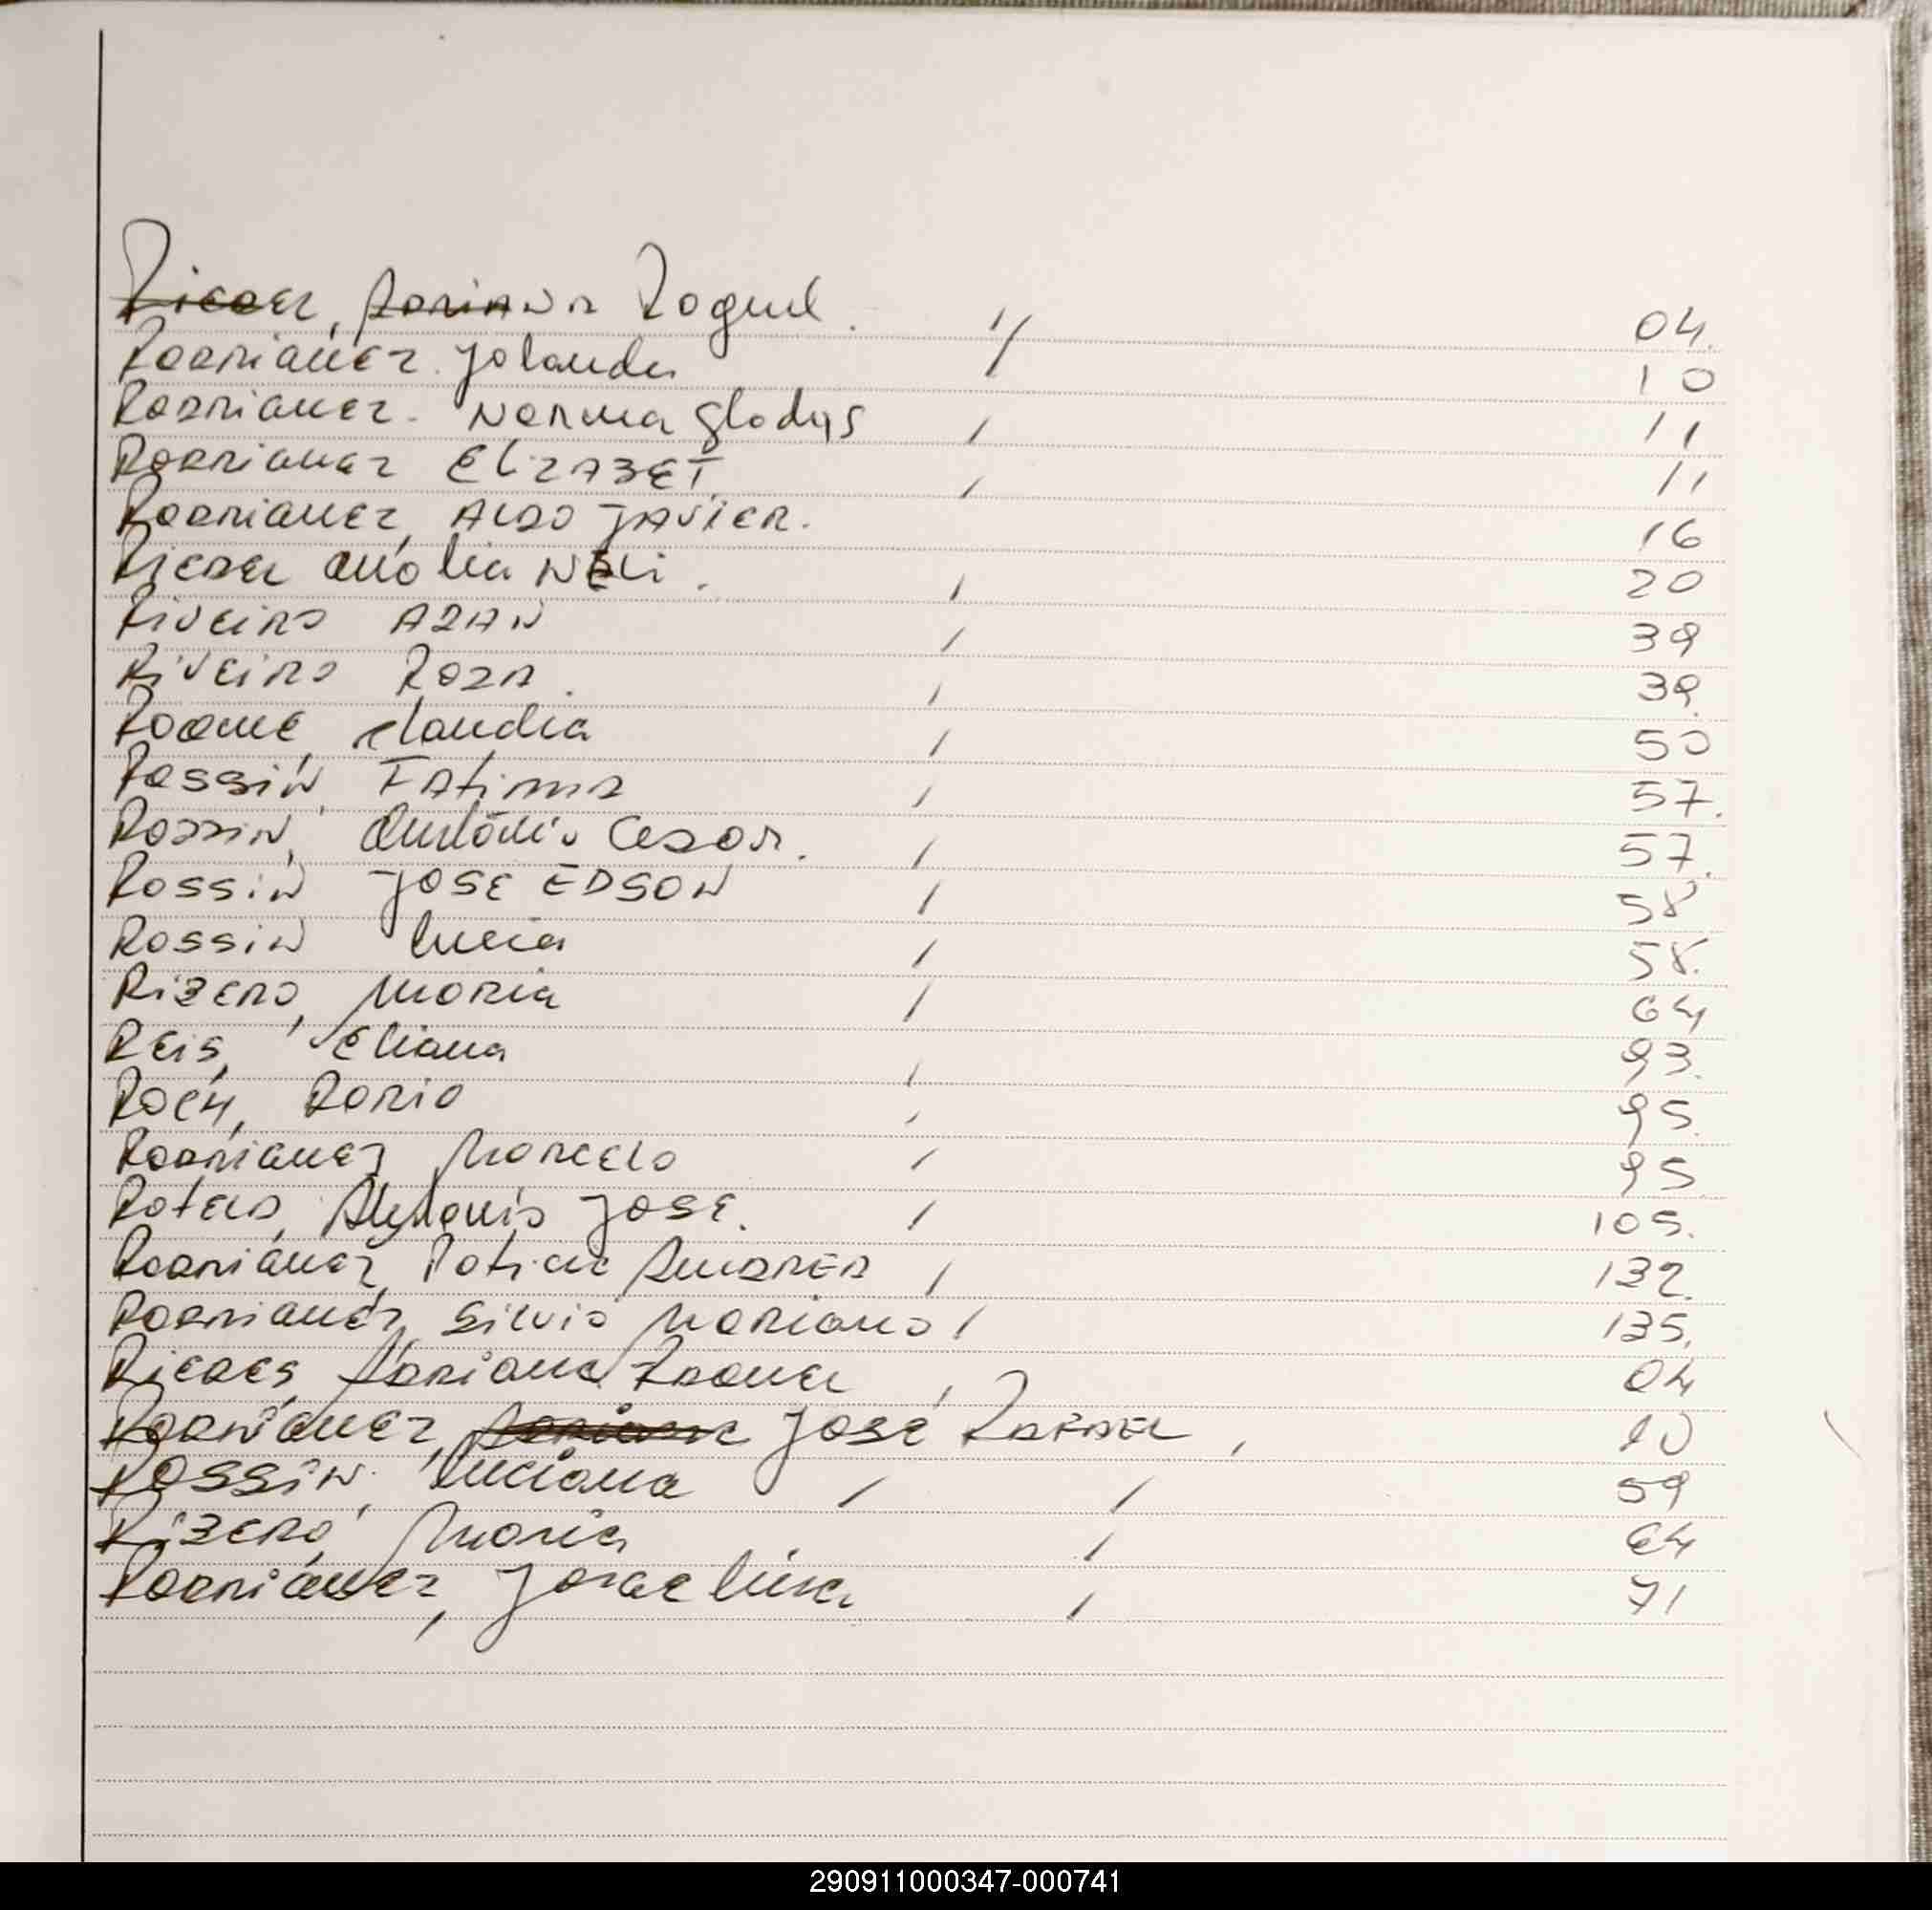 Rieder, Adriana Roquel. 04.
Rodriguez. Jolanda 10
Rodriguez. Norma Gladys 11
Rodriguez ELIZABET. 11
Rodriguez, ALDO JAVIER. 16
Rieder NELi. 20
Riveiro ADAN 39
Riveiro ROSA. 39.
Roque, Claudia 50
Rossin, FAtima 57.
Rossin, Antônio Cesar. 57.
Rossin JOSE EDSON 58
Rossin Lucia 58.
Ribero, Maria 64
REis, Eliana 93.
Dario 95.
Rodriguez Marcelo 95
Antonio JOSE. 105.
Rodriguez, ANDREA 132.
Rodriguez, Silvio Mariano 135.
Adriana 04
Rodriguez, José RAFAEL 10
ROSSiN, Luciana 59
Ribero, Maria 64
Rodriguez, Jorge Luis 71
290911000347-000741